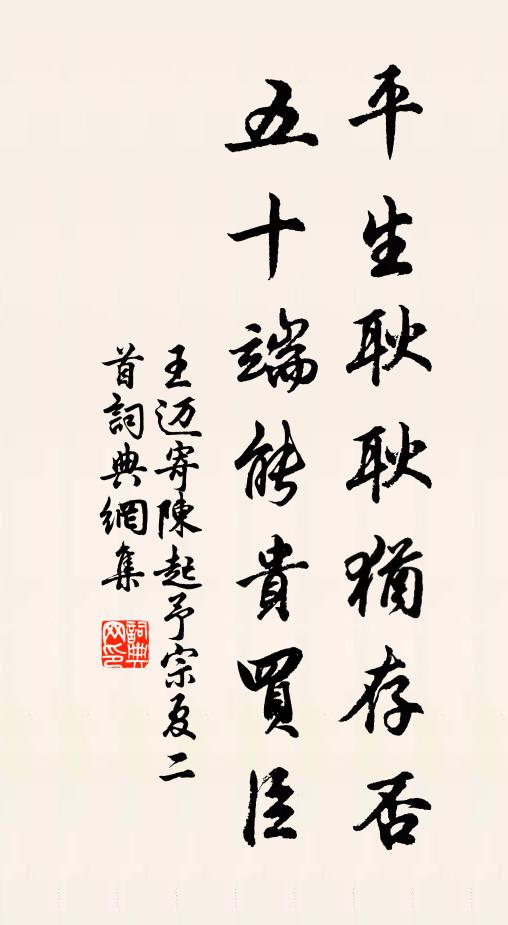 平生耿耿猶存否
五十端能貴買臣
王迈寄陳起予宗夏二
首詞典網集
詞典
网印